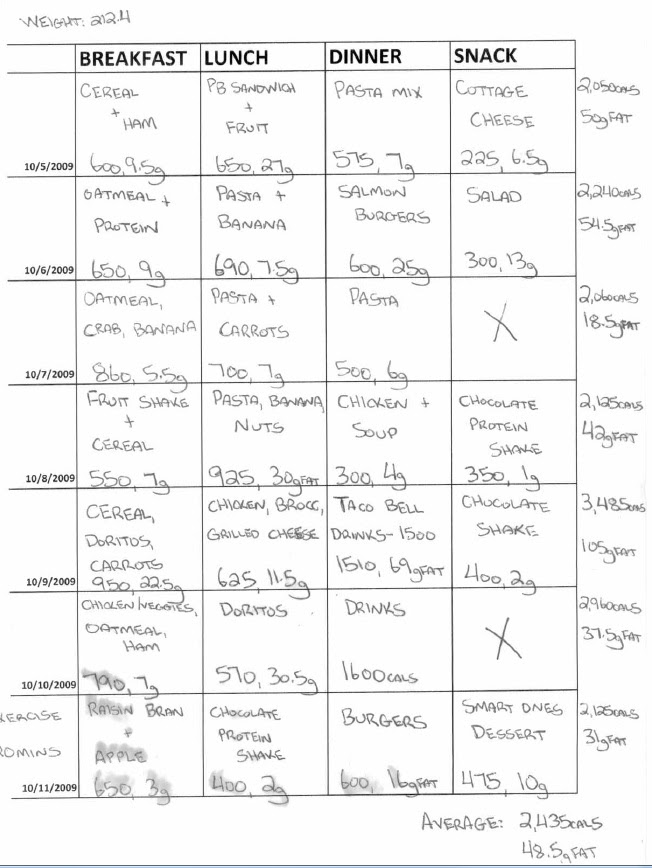 WEIGHT: 212.4
BREAKFAST LUNCH DINNER SNACK
CEREAL
+
HAM
10/5/2009 600, 9.5g
PB SANDWICH
+
FRUIT
650, 27g
PASTA MIX
575, 7g
COTTAGE
CHEESE
225, 6.5g
2,050CALS
50gFAT
OATMEAL +
PROTEIN
10/6/2009 650, 9g
PASTA +
BANANA
690, 7.5g
SALMON
BURGERS
600, 25g
SALAD
300, 13g
2,240CALS
54.5gFAT
OATMEAL,
CRAB, BANANA
10/7/2009 860, 5.5g
PASTA +
CARROTS
700, 7g
PASTA
500, 6g
X
2,060CALS
18.5gFAT
FRUIT SHAKE
+
CEREAL
10/8/2009 550, 7g
PASTA, BANANA,
NUTS
925, 30gFAT
CHICKEN +
SOUP
300, 4g
CHOCOLATE
PROTEIN
SHAKE
350, 1g
2,125CALS
42gFAT
CEREAL,
DORITOS,
CARROTS
10/9/2009 950, 22.5g
CHICKEN, BROCC,
GRILLED CHEESE
625, 11.5g
TACO BELL
DRINKS-1500
1510, 69gFAT
CHOCOLATE
SHAKE
400, 2g
3,485CALS
105gFAT
CHICKEN/VEGGIES,
OATMEAL,
HAM
10/10/2009 790, 7g
DORITOS
570, 30.5g
DRINKS
1600CALS
X
2,960CALS
37.5gFAT
XERCISE
ROMINS
RAISIN BRAN
+
APPLE
10/11/2009 650, 3g
CHOCOLATE
PROTEIN
SHAKE
400, 2g
BURGERS
600, 16gFAT
SMART ONES
DESSERT
475, 10g
2,125CALS
31gFAT
AVERAGE: 2,435CALS
48.5gFAT